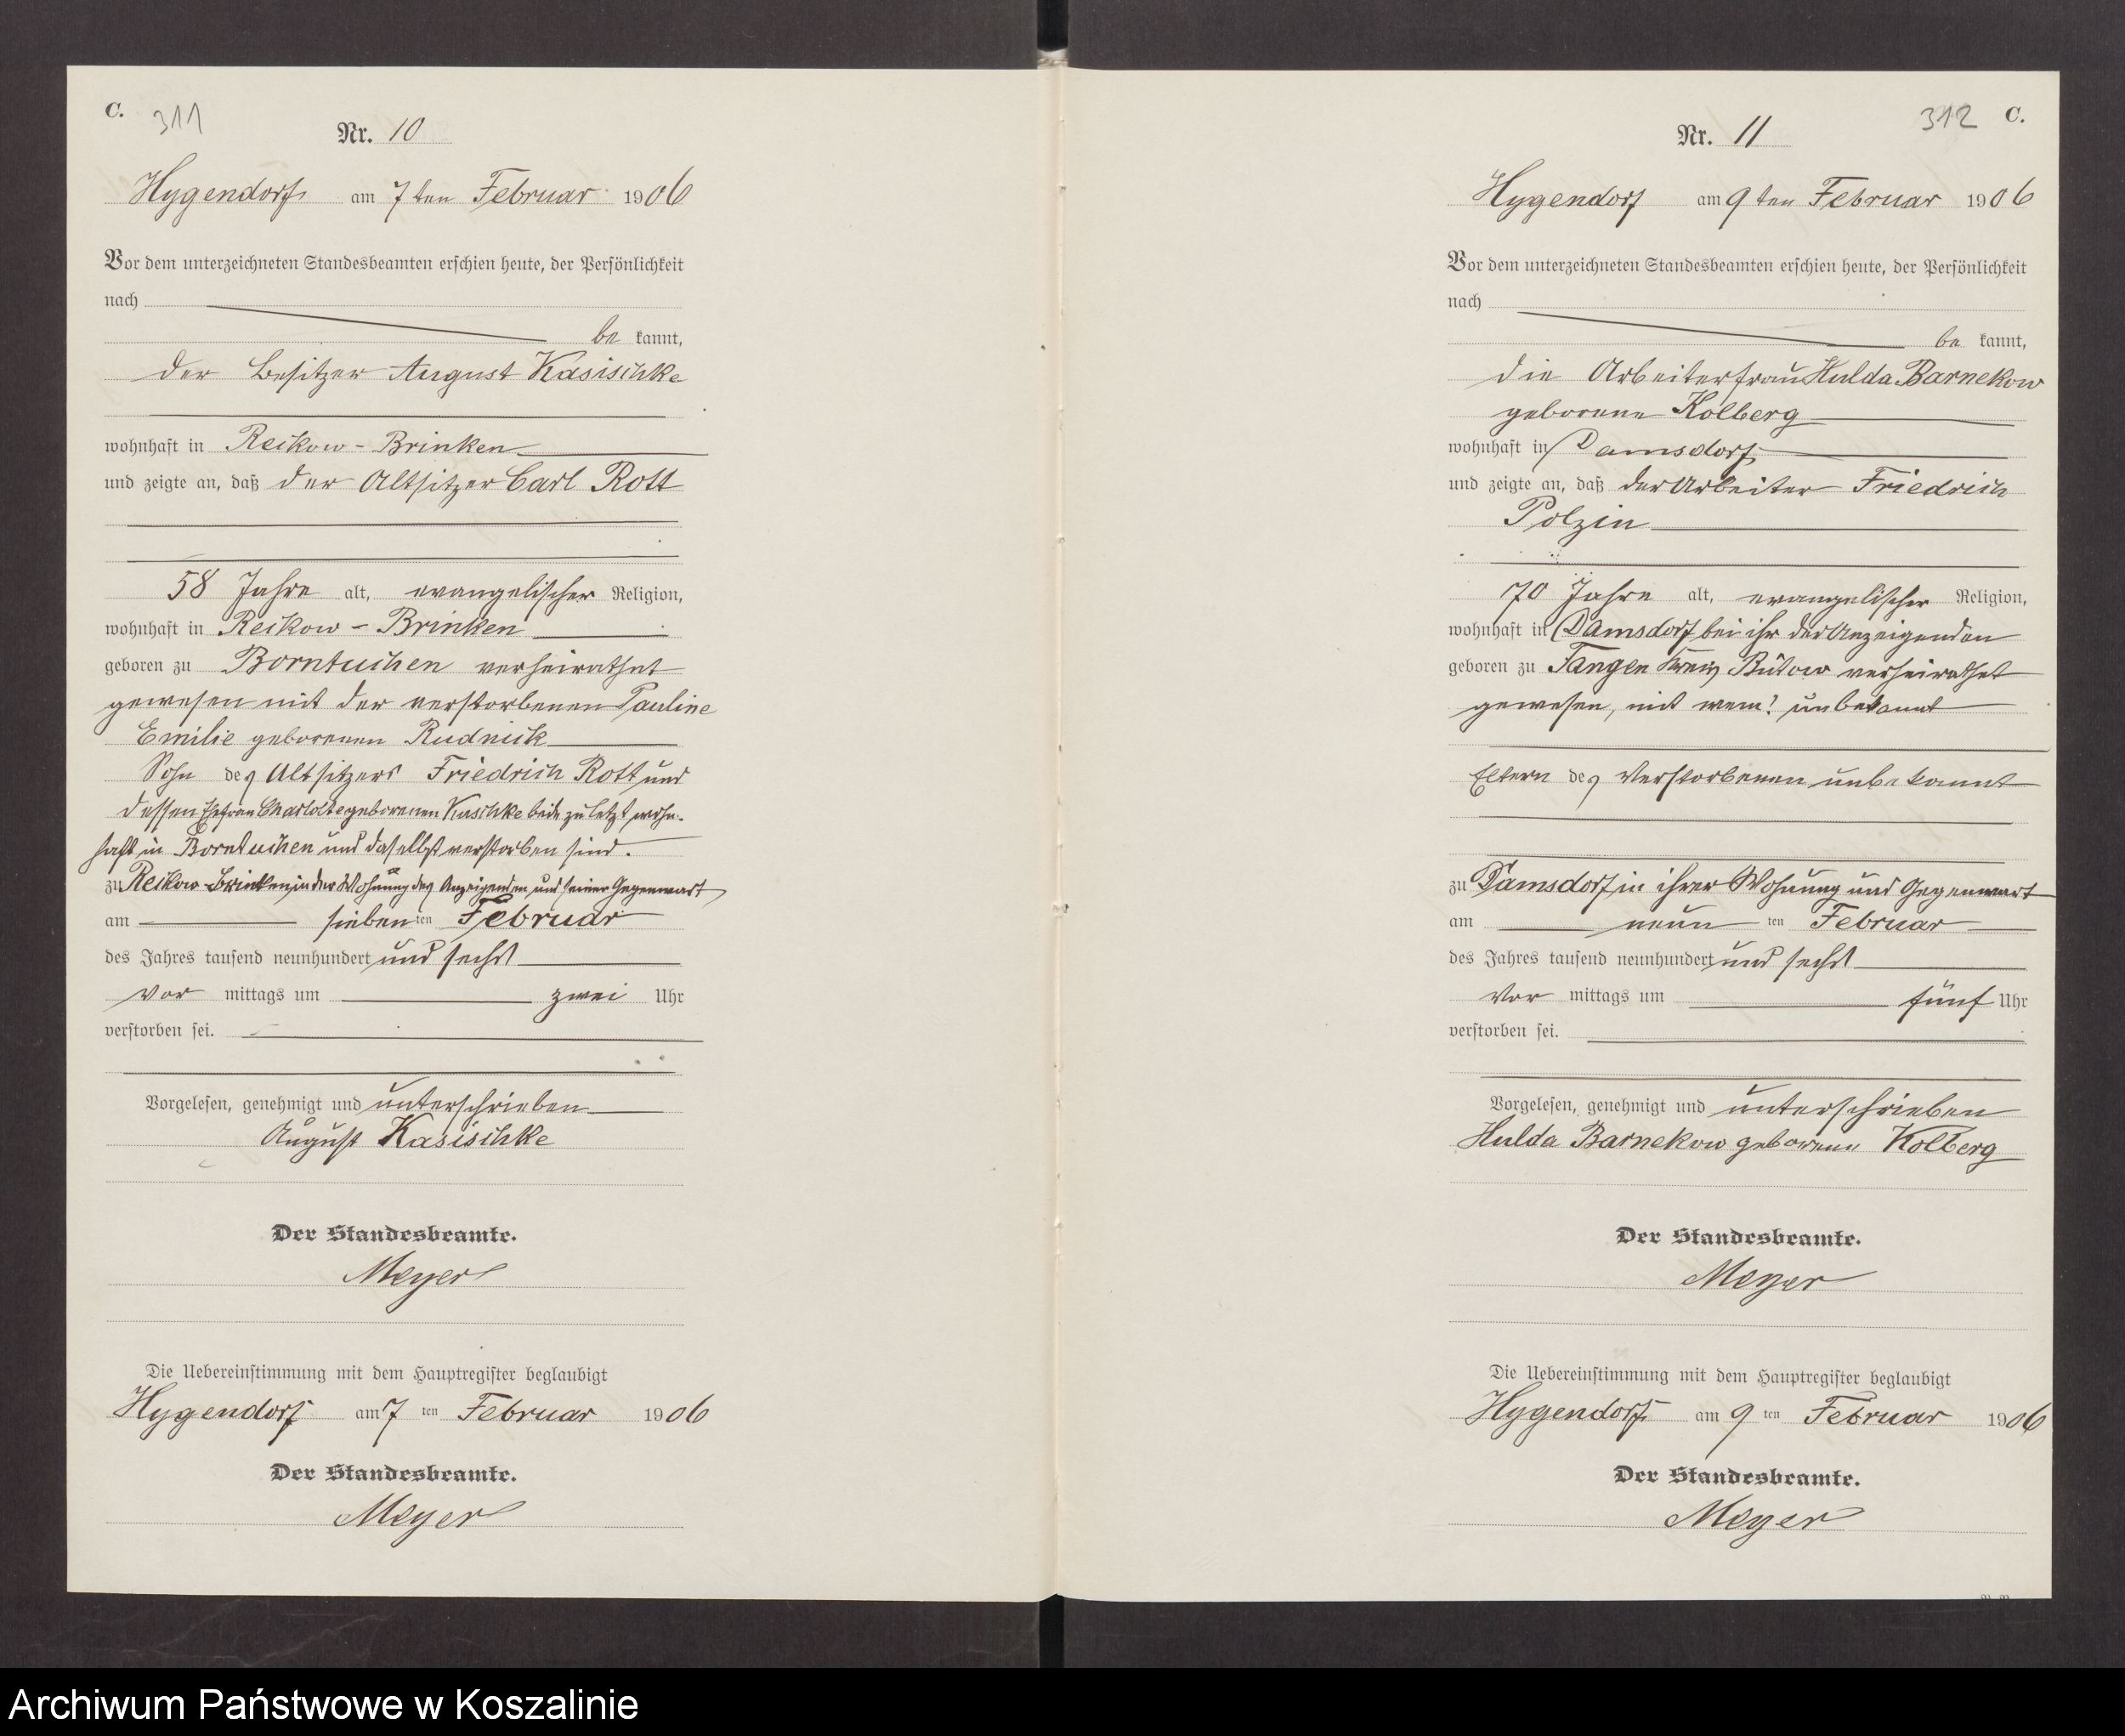 C. 311
Nr. 10
Hygendorf am 7ten Februar 1906
Vor dem unterzeichneten Standesbeamten erschien heute, der Persönlichkeit
nach
be kannt,
der Besitzer August Kasischke
wohnhaft in Reckow-Brinken
und zeigte an, daß der Altsitzer Carl Rott
58 Jahre alt, evangelischer Religion,
wohnhaft in Reckow-Brinken
geboren zu Borntuchen verheirathet
gewesen mit der verstorbenen Pauline
Emilie geborenen Rudnick
Sohn des Altsitzers Friedrich Rott und
dessen Ehefrau Charlotte geborenen Kaschke beide zuletzt wohn-
haft in Borntuchen und daselbst verstorben sind.
zu Reckow-Brinken, in der Wohnung des Anzeigenden und seiner Gegenwart
am sieben ten Februar
des Jahres tausend neunhundert und sechs
vor mittags um zwei Uhr
verstorben sei.
Vorgelesen, genehmigt und unterschrieben
August Kasischke
Der Standesbeamte.
Meyer
Die Uebereinstimmung mit dem Hauptregister beglaubigt
Hygendorf am 7 ten Februar 1906
Der Standesbeamte.
Meyer
312 C.
Nr. 11
Hygendorf am 9ten Februar 1906
Vor dem unterzeichneten Standesbeamten erschien heute, der Persönlichkeit
nach
be kannt,
die Arbeiterfrau Hulda Barnekow
geborene Kolberg
wohnhaft in Damsdorf
und zeigte an, daß der Arbeiter Friedrich
Polzin
70 Jahre alt, evangelischer Religion,
wohnhaft in Damsdorf bei ihr der Anzeigenden
geboren zu Tangen Kreis Bütow verheirathet
gewesen, mit wem? unbekannt
Eltern des Verstorbenen unbekannt
zu Damsdorf in ihrer Wohnung und Gegenwart
am neun ten Februar
des Jahres tausend neunhundert und sechs
Vor mittags um fünf Uhr
verstorben sei.
Vorgelesen, genehmigt und unterschrieben
Hulda Barnekow geborene Kolberg
Der Standesbeamte.
Meyer
Die Uebereinstimmung mit dem Hauptregister beglaubigt
Hygendorf am 9 ten Februar 1906
Der Standesbeamte.
Meyer
Archiwum Państwowe w Koszalinie